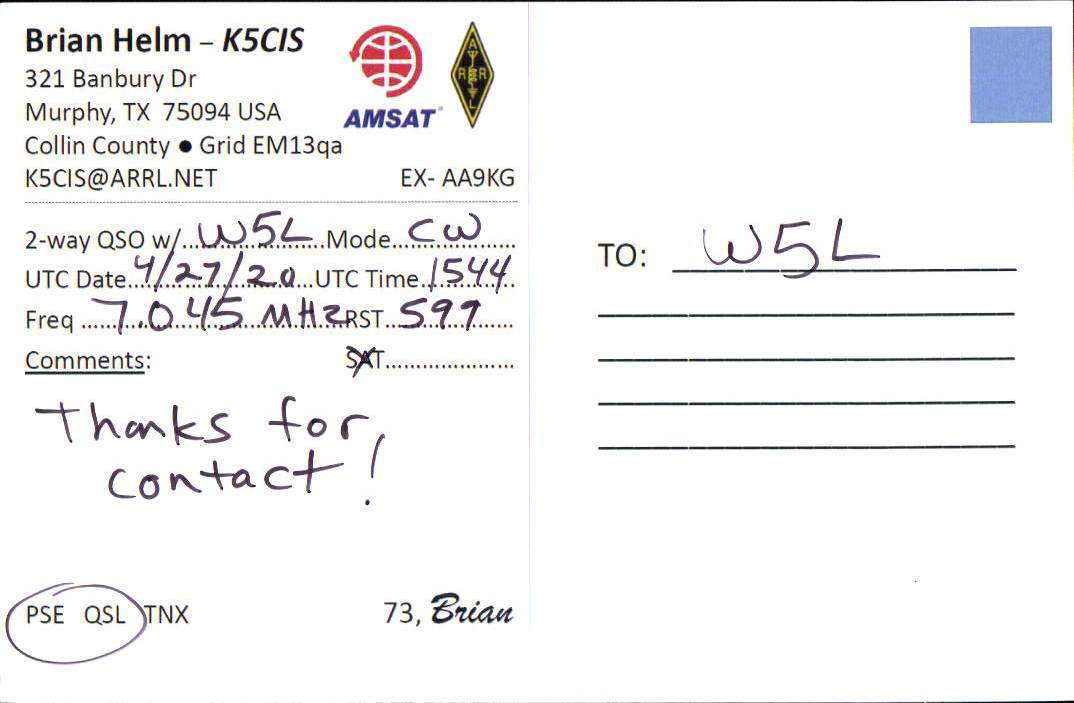 Brian Helm – K5CIS
321 Banbury Dr
Murphy, TX 75094 USA
Collin County ● Grid EM13qa
K5CIS@ARRL.NET EX- AA9KG
AMSAT
ARRL
2-way QSO w/...W5L...Mode...CW...
UTC Date...4/27/20...UTC Time...1544...
Freq ...7.045 MHz...RST...599...
Comments: SAT...
Thanks for
contact!
PSE QSL TNX 73, Brian
TO: W5L